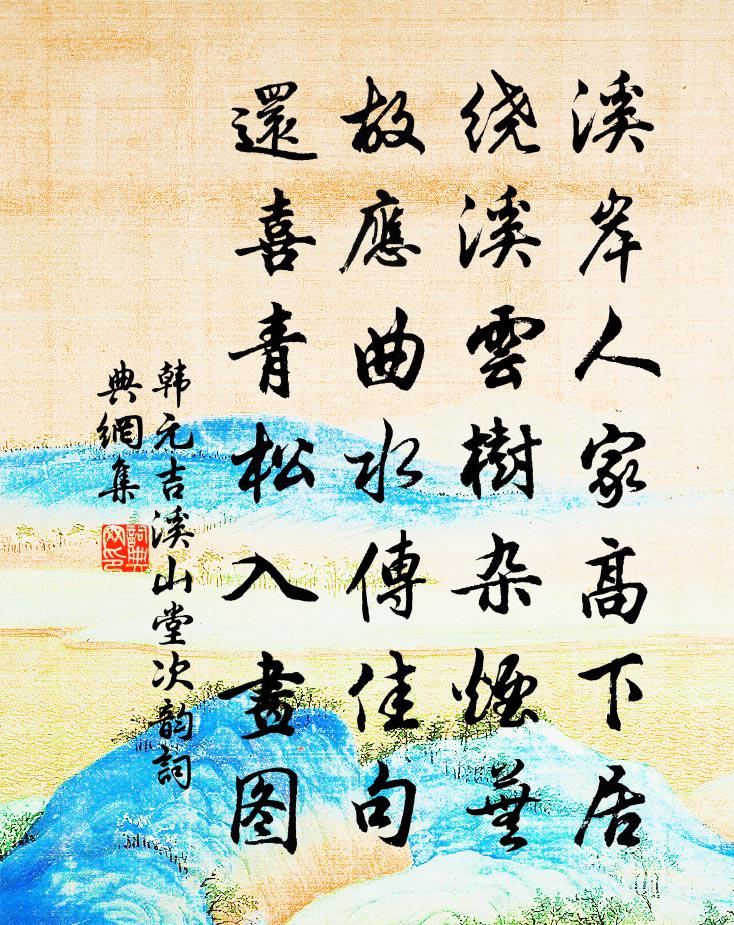 溪岸人家高下居
绕溪雲樹杂煙蕪
故應曲水傳佳句
還喜青松入畫图
韩元吉溪山堂次韵詞
典網集
詞典